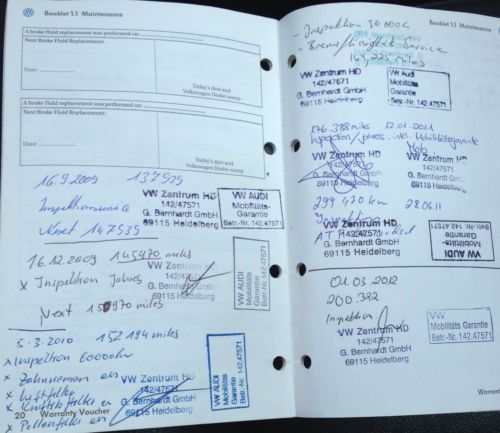 Booklet 1.1 Maintenance
A brake fluid replacement was performed on:
Next Brake Fluid Replacement:
Date:
Today's date and
Volkswagen Dealer stamp
A brake fluid replacement was performed on:
Next Brake Fluid Replacement:
Date:
Today's date and
Volkswagen Dealer stamp
16.9.2009 137979
Inspektionsservice
Next 147939
VW Zentrum HD
142/47571
G. Bernhardt GmbH
69115 Heidelberg
VW AUDI
Mobilitäts-
Garantie
Betr.-Nr. 142.47571
16.12.2009 145970 miles
x Inspektion Jahres
Next 150970 miles
VW Zentrum HD
142/47571
G. Bernhardt GmbH
69115 Heidelberg
VW AUDI
Mobilitäts
Garantie
Betr.Nr. 142.47571
5.3.2010 152194 miles
x Inspektion 60000km
x Zahnriemen ern
x Luftfilter
x Kraftstofffilter ern
x Pollenfilter ern
VW Zentrum HD
142/47571
G. Bernhardt GmbH
69115 Heidelberg
VW AUDI
Mobilitäts
Garantie
Betr.-Nr. 142.47571
20 Warranty Voucher
Booklet 1.1 M
- Inspektion 30000km
- Bremsflüssigkeit Service
164,225 miles
VW Zentrum HD
142/47571
G. Bernhardt GmbH
69115 Heidelberg
VW AUDI
Mobilitäts-
Garantie
Betr.-Nr. 142.47571
176.388 miles 12.01.2011
Inspektion/Jahres. inkl. Mobilitätsgarantie
VW Zentrum HD
142/47571
G. Bernhardt GmbH
69115 Heidelberg
VW Zentrum HD
142/47571
G. Bernhardt GmbH
69115 Heidelberg
299 430 km 28.06.11
Inspektion
VW Zentrum HD
142/47571
G. Bernhardt GmbH
69115 Heidelberg
VW AUDI
Mobilitäts
Garantie
Betr.-Nr. 142.47571
01.03.2012
200.372
Inspektion
VW Zentrum HD
142/47571
G. Bernhardt GmbH
69115 Heidelberg
VW
Mobilitäts Garantie
Betr.-Nr. 142.47571
Warranty